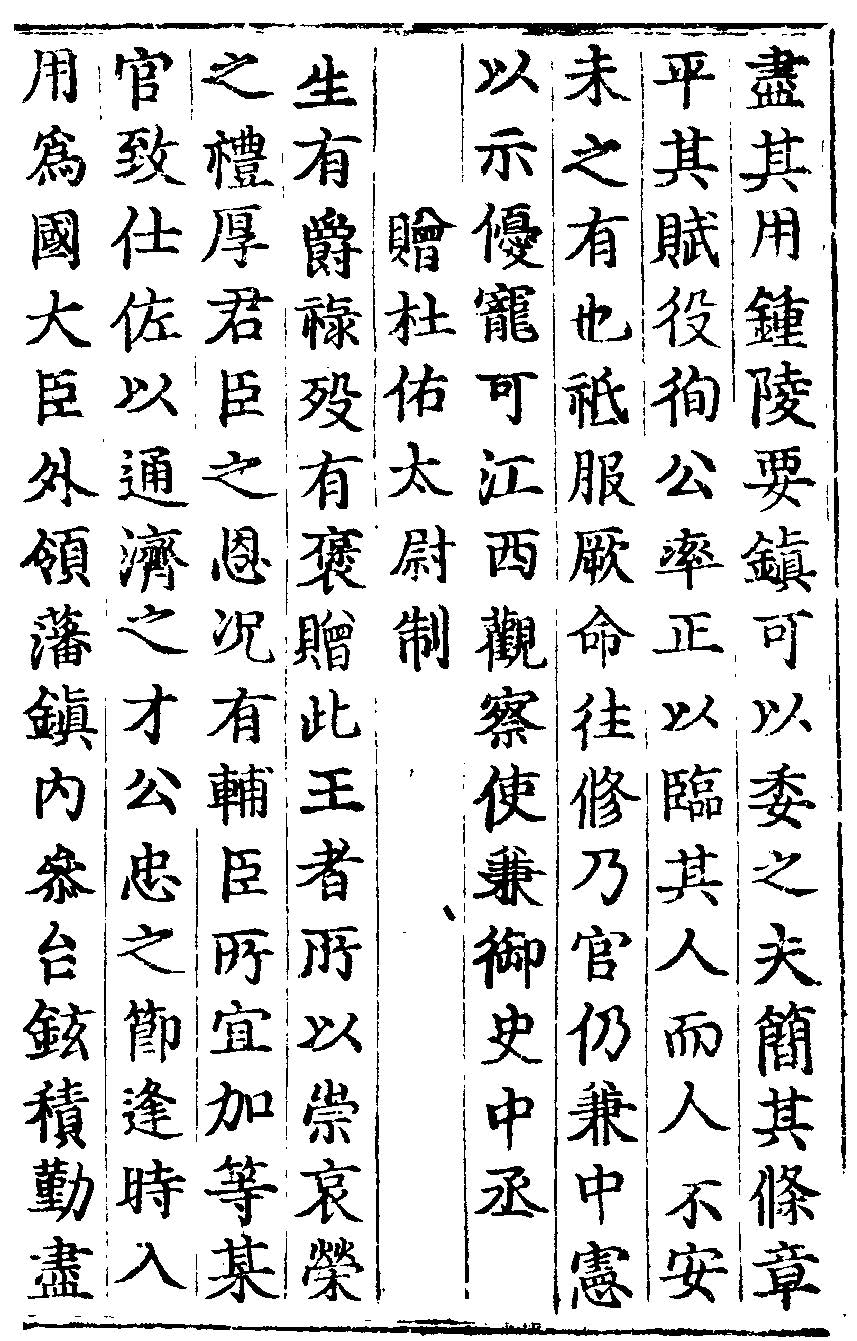 盡其用鍾陵要鎮可以委之夫簡其條章
平其賦役徇公率正以臨其人而人不安
未之有也祗服厥命往修乃官仍兼中憲
以示優寵可江西觀察使兼御史中丞
贈杜佑太尉制
生有爵祿歿有褒贈此王者所以崇哀榮
之禮厚君臣之恩况有輔臣所宜加等某
官致仕佐以通濟之才公忠之節逢時入
用爲國大臣外領藩鎮內叅台鉉積勤盡